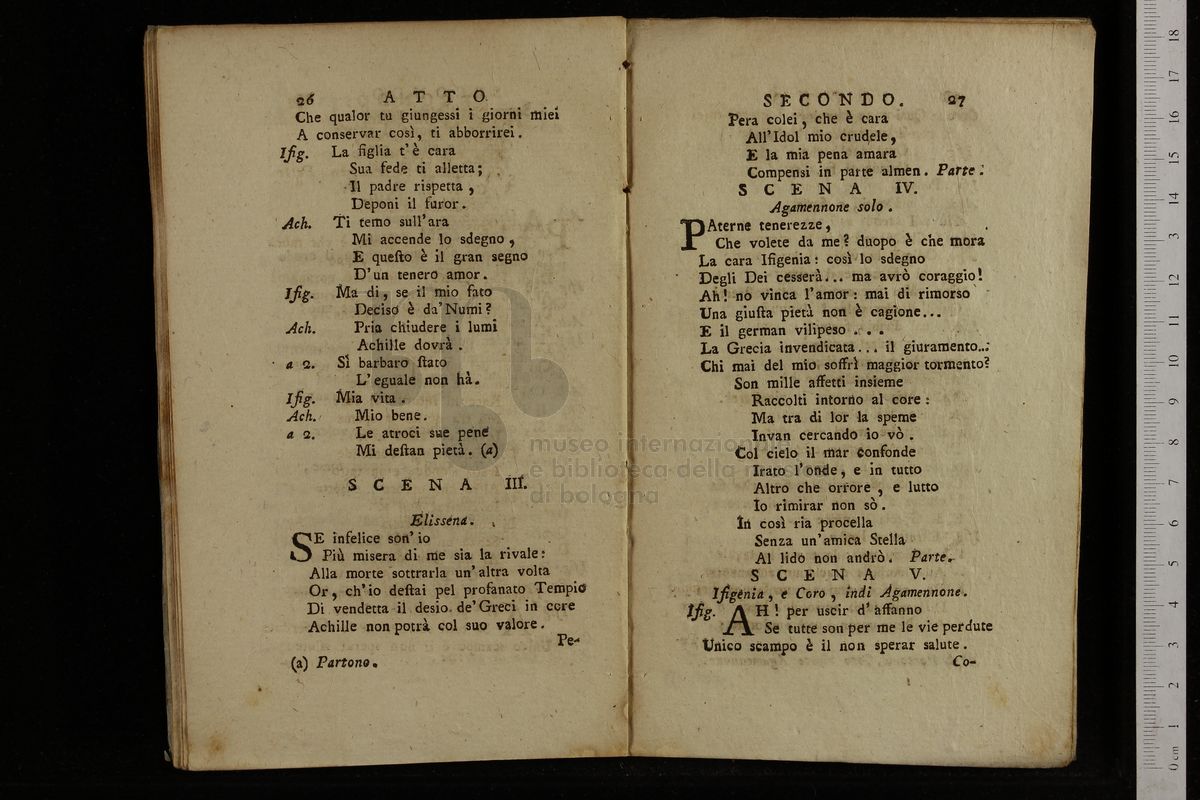 26 ATTO
Che qualor tu giungessi i giorni miei
A conservar così, ti abborrirei.
Ifig. La figlia t'è cara
Sua fede ti alletta;
Il padre rispetta,
Deponi il furor.
Ach. Ti temo sull'ara
Mi accende lo sdegno,
E questo è il gran segno
D'un tenero amor.
Ifig. Ma di, se il mio fato
Deciso è da'Numi?
Ach. Pria chiudere i lumi
Achille dovrà.
a 2. Sì barbaro stato
L'eguale non hà.
Ifig. Mia vita.
Ach. Mio bene.
a 2. Le atroci sue pene
Mi destan pietà. (a)
SCENA III.
Elissena.
SE infelice son'io
Più misera di me sia la rivale:
Alla morte sottrarla un'altra volta
Or, ch'io destai pel profanato Tempio
Di vendetta il desio de'Greci in core
Achille non potrà col suo valore.
Pe-
(a) Partono.
SECONDO. 27
Pera colei, che è cara
All'Idol mio crudele,
E la mia pena amara
Compensi in parte almen. Parte.
SCENA IV.
Agamennone solo.
PAterne tenerezze,
Che volete da me? duopo è che mora
La cara Ifigenia: così lo sdegno
Degli Dei cesserà... ma avrò coraggio!
Ah! no vinca l'amor: mai di rimorso
Una giusta pietà non è cagione...
E il german vilipeso...
La Grecia invendicata... il giuramento...
Chi mai del mio soffrì maggior tormento?
Son mille affetti insieme
Raccolti intorno al core:
Ma tra di lor la speme
Invan cercando io vò.
Col cielo il mar confonde
Irato l'onde, e in tutto
Altro che orrore, e lutto
Io rimirar non sò.
In così ria procella
Senza un'amica Stella
Al lido non andrò. Parte.
SCENA V.
Ifigenia, e Coro, indi Agamennone.
Ifig. AH! per uscir d'affanno
Se tutte son per me le vie perdute
Unico scampo è il non sperar salute.
Co-
museo internazionale
e biblioteca della musica
di bologna
0 cm 1 2 3 4 5 6 7 8 9 10 11 12 13 14 15 16 17 18